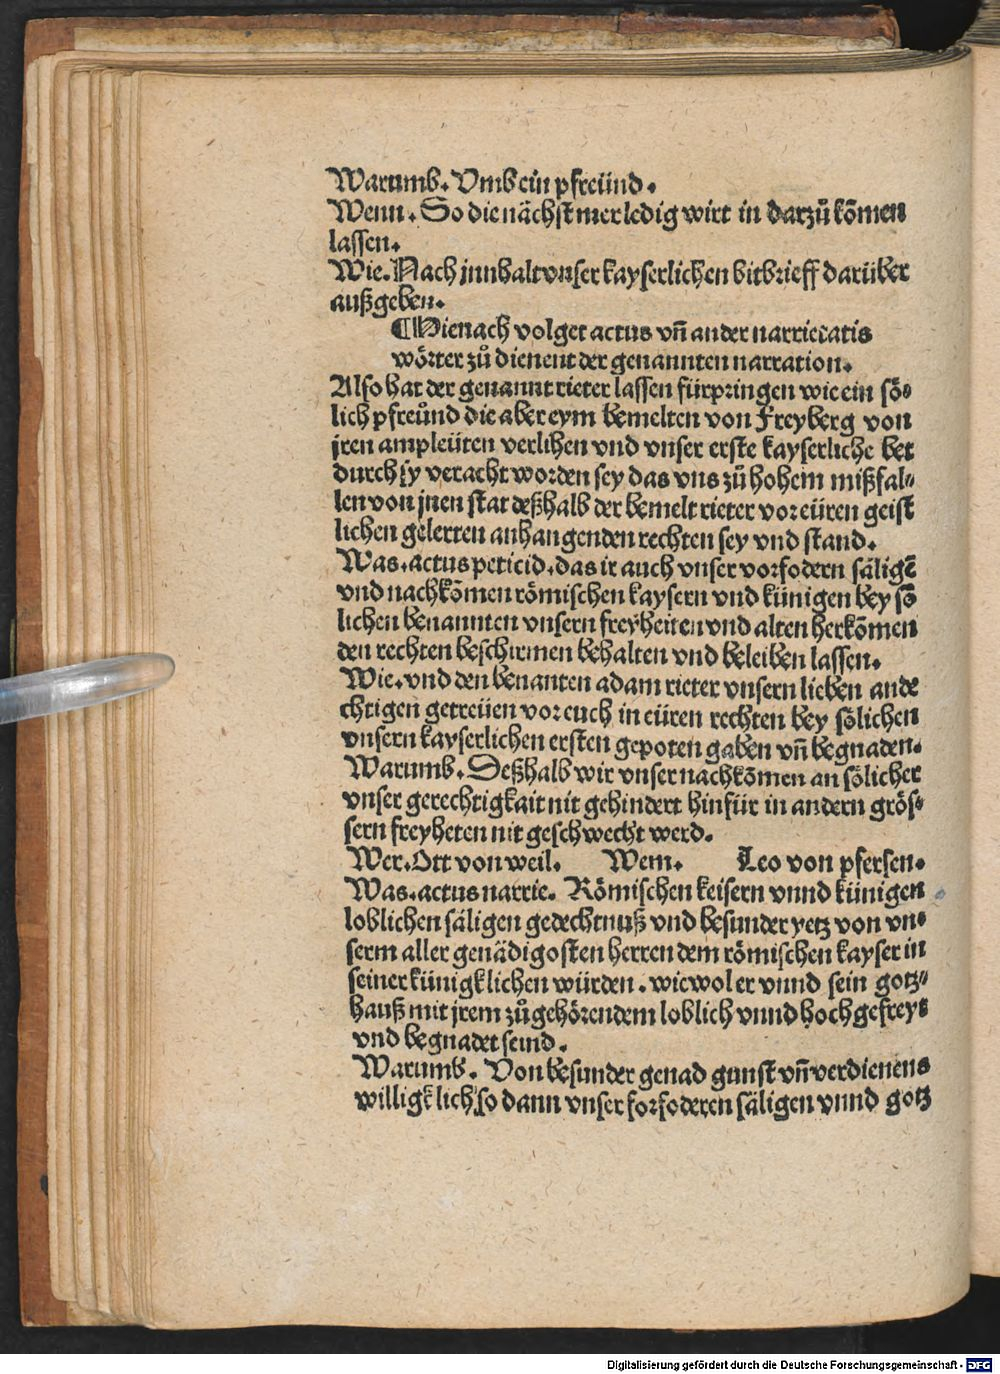 Warumb. Vmb ein pfreünd.
Wenn. So die nächst mer ledig wirt in darzů kõmen
lassen.
Wie. Nach jnnhalt vnser kayserlichen bitbrieff darüber
außgeben.
¶Hienach volget actus vñ ander narriecatis
wörter zů dienent der genannten narration.
Also hat der genannt rieter lassen fürpringen wie ein sö⸗
lich pfreůnd die aber eym bemelten von Freyberg von
jren ampleüten verlihen vnd vnser erste kayserliche bet
durch sy veracht worden sey das vns zů hohem mißfal⸗
len von jnen stat deßhalb der bemelt rieter vor eüren geist
lichen gelerten anhangenden rechten sey vnd stand.
Was. actus peticid. das ir auch vnser vorfodern säligẽ
vnd nachkõmen römischen kaysern vnd künigen bey sö
lichen benannten vnsern freyheiten vnd alten herkõmen
den rechten beschirmen behalten vnd beleiben lassen.
Wie. vnd den benanten adam rieter vnsern lieben ande
chtigen getreüen vor euch in eüren rechten bey sölichen
vnsern kayserlichen ersten gepoten gaben vñ begnaden.
Warumb. Deßhalb wir vnser nachkõmen an sölicher
vnser gerechtigkait nit gehindert hinfür in andern grös⸗
sern freyheten nit geschwecht werd.
Wer. Ott von weil. Wem. Leo von pfersen.
Was. actus narrie. Römischen keisern vnnd künigen
loblichen säligen gedechtnuß vnd besunder yetz von vn⸗
serm aller genädigosten herren dem römischen kayser in
seiner künigklichen würden. wiewol er vnnd sein gotz⸗
hauß mit jrem zůgehörendem loblich vnnd hochgefreyt
vnd begnadet seind.
Warumb. Von besunder genad gunst vñ verdienens
willigklich so dann vnser forfoderen säligen vnnd gotz
Digitalisierung gefördert durch die Deutsche Forschungsgemeinschaft - DFG